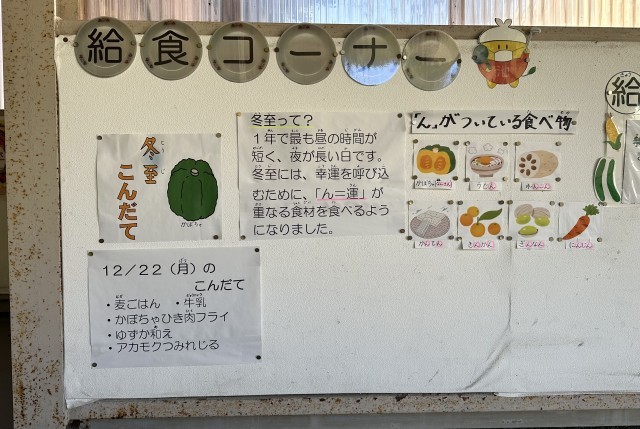 給食コーナー
冬至
こんだて
かぼちゃ
冬至って？
１年で最も昼の時間が
短く、夜が長い日です。
冬至には、幸運を呼び込
むために、「ん＝運」が
重なる食材を食べるよう
になりました。
「ん」がついている食べ物
かぼちゃ(なんきん)
うどん
れんこん
かんてん
きんかん
ぎんなん
にんじん
12/22（月）の
こんだて
・麦ごはん ・牛乳
・かぼちゃひき肉フライ
・ゆずか和え
・アカモクつみれじる
給